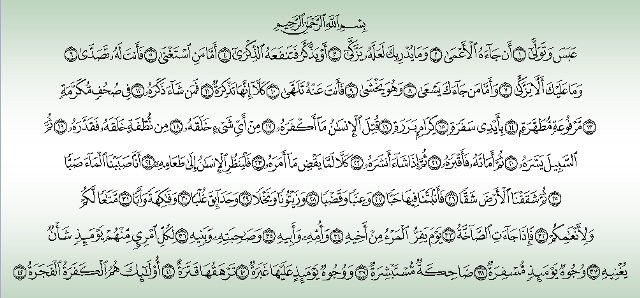 بِسْمِ اللَّهِ الرَّحْمَٰنِ الرَّحِيمِ
عَبَسَ وَتَوَلَّىٰٓ ۝١ أَن جَآءَهُ ٱلْأَعْمَىٰ ۝٢ وَمَا يُدْرِيكَ لَعَلَّهُۥ يَزَّكَّىٰٓ ۝٣ أَوْ يَذَّكَّرُ فَتَنفَعَهُ ٱلذِّكْرَىٰٓ ۝٤ أَمَّا مَنِ ٱسْتَغْنَىٰ ۝٥ فَأَنتَ لَهُۥ تَصَدَّىٰ ۝٦
وَمَا عَلَيْكَ أَلَّا يَزَّكَّىٰ ۝٧ وَأَمَّا مَن جَآءَكَ يَسْعَىٰ ۝٨ وَهُوَ يَخْشَىٰ ۝٩ فَأَنتَ عَنْهُ تَلَهَّىٰ ۝١٠ كَلَّآ إِنَّهَا تَذْكِرَةٌ ۝١١ فَمَن شَآءَ ذَكَرَهُۥ ۝١٢ فِى صُحُفٍ مُّكَرَّمَةٍ
۝١٣ مَّرْفُوعَةٍ مُّطَهَّرَةٍۭ ۝١٤ بِأَيْدِى سَفَرَةٍ ۝١٥ كِرَامٍۭ بَرَرَةٍ ۝١٦ قُتِلَ ٱلْإِنسَٰنُ مَآ أَكْفَرَهُۥ ۝١٧ مِنْ أَىِّ شَىْءٍ خَلَقَهُۥ ۝١٨ مِن نُّطْفَةٍ خَلَقَهُۥ فَقَدَّرَهُۥ ۝١٩ ثُمَّ
ٱلسَّبِيلَ يَسَّرَهُۥ ۝٢٠ ثُمَّ أَمَاتَهُۥ فَأَقْبَرَهُۥ ۝٢١ ثُمَّ إِذَا شَآءَ أَنشَرَهُۥ ۝٢٢ كَلَّا لَمَّا يَقْضِ مَآ أَمَرَهُۥ ۝٢٣ فَلْيَنظُرِ ٱلْإِنسَٰنُ إِلَىٰ طَعَامِهِۦٓ ۝٢٤ أَنَّا صَبَبْنَا ٱلْمَآءَ صَبًّا
۝٢٥ ثُمَّ شَقَقْنَا ٱلْأَرْضَ شَقًّا ۝٢٦ فَأَنۢبَتْنَا فِيهَا حَبًّا ۝٢٧ وَعِنَبًا وَقَضْبًا ۝٢٨ وَزَيْتُونًا وَنَخْلًا ۝٢٩ وَحَدَآئِقَ غُلْبًا ۝٣٠ وَفَٰكِهَةً وَأَبًّا ۝٣١ مَّتَٰعًا لَّكُمْ
وَلِأَنْعَٰمِكُمْ ۝٣٢ فَإِذَا جَآءَتِ ٱلصَّآخَّةُ ۝٣٣ يَوْمَ يَفِرُّ ٱلْمَرْءُ مِنْ أَخِيهِ ۝٣٤ وَأُمِّهِۦ وَأَبِيهِ ۝٣٥ وَصَٰحِبَتِهِۦ وَبَنِيهِ ۝٣٦ لِكُلِّ ٱمْرِئٍ مِّنْهُمْ يَوْمَئِذٍ شَأْنٌ
يُغْنِيهِ ۝٣٧ وُجُوهٌ يَوْمَئِذٍ مُّسْفِرَةٌ ۝٣٨ ضَاحِكَةٌ مُّسْتَبْشِرَةٌ ۝٣٩ وَوُجُوهٌ يَوْمَئِذٍ عَلَيْهَا غَبَرَةٌ ۝٤٠ تَرْهَقُهَا قَتَرَةٌ ۝٤١ أُو۟لَٰٓئِكَ هُمُ ٱلْكَفَرَةُ ٱلْفَجَرَةُ ۝٤٢